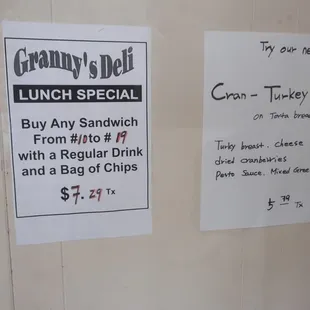 Granny's Deli
LUNCH SPECIAL
Buy Any Sandwich
From #10 to # 19
with a Regular Drink
and a Bag of Chips
$7.29 Tx
Try our ne
Cran - Turkey
on Torta brea
Turky breast. cheese
dried cranberries
Pesto Sauce, Mixed Gree
5 79 Tx